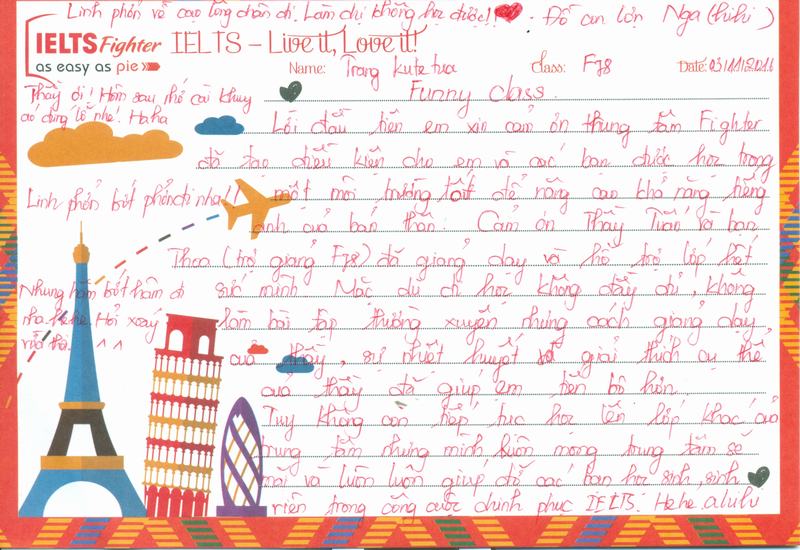 Linh phởn về cạo lông chân đi. Làm dự không học được!! - Đỗ an lớn Nga (hihi)
IELTS Fighter IELTS – Live it, Love it!
as easy as pie
Name: Trang kute tua Class: F78 Date: 03/11/2016
Thầy ơi! Hôm sau nhớ cài khuy
áo đúng lỗ nhé! Haha
Funny class.
Lời đầu tiên em xin cảm ơn trung tâm Fighter
đã tạo điều kiện cho em và các bạn được học trong
một môi trường tốt để nâng cao khả năng tiếng
Linh phởn bớt phởn đi nha!!
anh của bản thân. Cảm ơn Thầy Tuấn và bạn
Thoa (trợ giảng F78) đã giảng dạy và hỗ trợ lớp hết
sức mình. Mặc dù đi học không đầy đủ, không
Nhưng hâm bớt hâm đi
nha. Hehe. Hỏi xoáy
vừa thôi. ^^
làm bài tập thường xuyên nhưng cách giảng dạy
của thầy, sự nhiệt huyết giải thích cụ thể
của thầy đã giúp em tiến bộ hơn.
Tuy không còn tiếp tục học lên lớp khác của
trung tâm nhưng mình luôn mong trung tâm sẽ
mãi và luôn luôn giúp đỡ các bạn học sinh, sinh
viên trong công cuộc chinh phục IELTS. Hehe. alulu